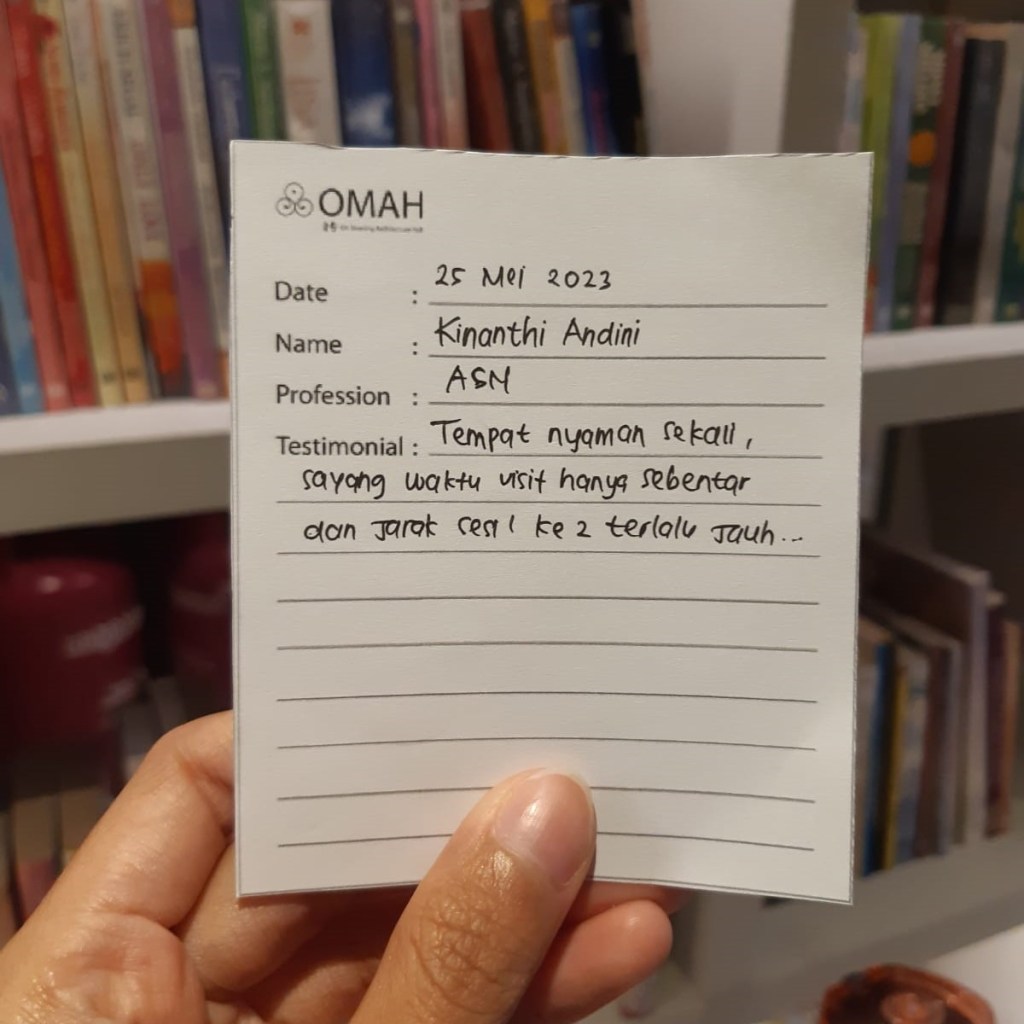 OMAH
Date : 25 Mei 2023
Name : Kinanthi Andini
Profession : ASN
Testimonial : Tempat nyaman sekali,
sayang waktu visit hanya sebentar
dan jarak sesi 1 ke 2 terlalu jauh...